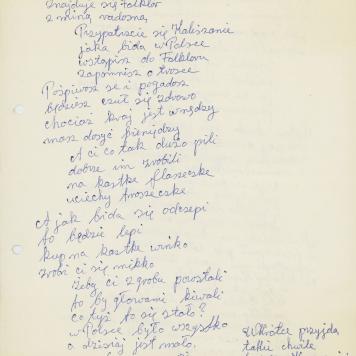 znajduje się Folklor
z miną radosną
Przypatrzcie się Kaliszanie
jaka bida w Polsce
wstąpisz do Folkloru
zapomnisz o trosce
Pośpiwosz se i pogadosz
będziesz czuł się zdrowo
chociaż kraj jest w nędzy
masz dosyć pieniędzy
A ci co tak dużo pili
dobrze im zrobili
na kartke flaszeczke
uciechy troszeczke
A jak bida się odczepi
to będzie lepi
kup na kartke winko
zrobi ci się miękko
Żeby ci z grobu powstali
to by głowami kiwali
co tyż to się stało?
w Polsce było wszystko
a dzisiaj jest mało.
Wkrótce przyjdą
takie chwile